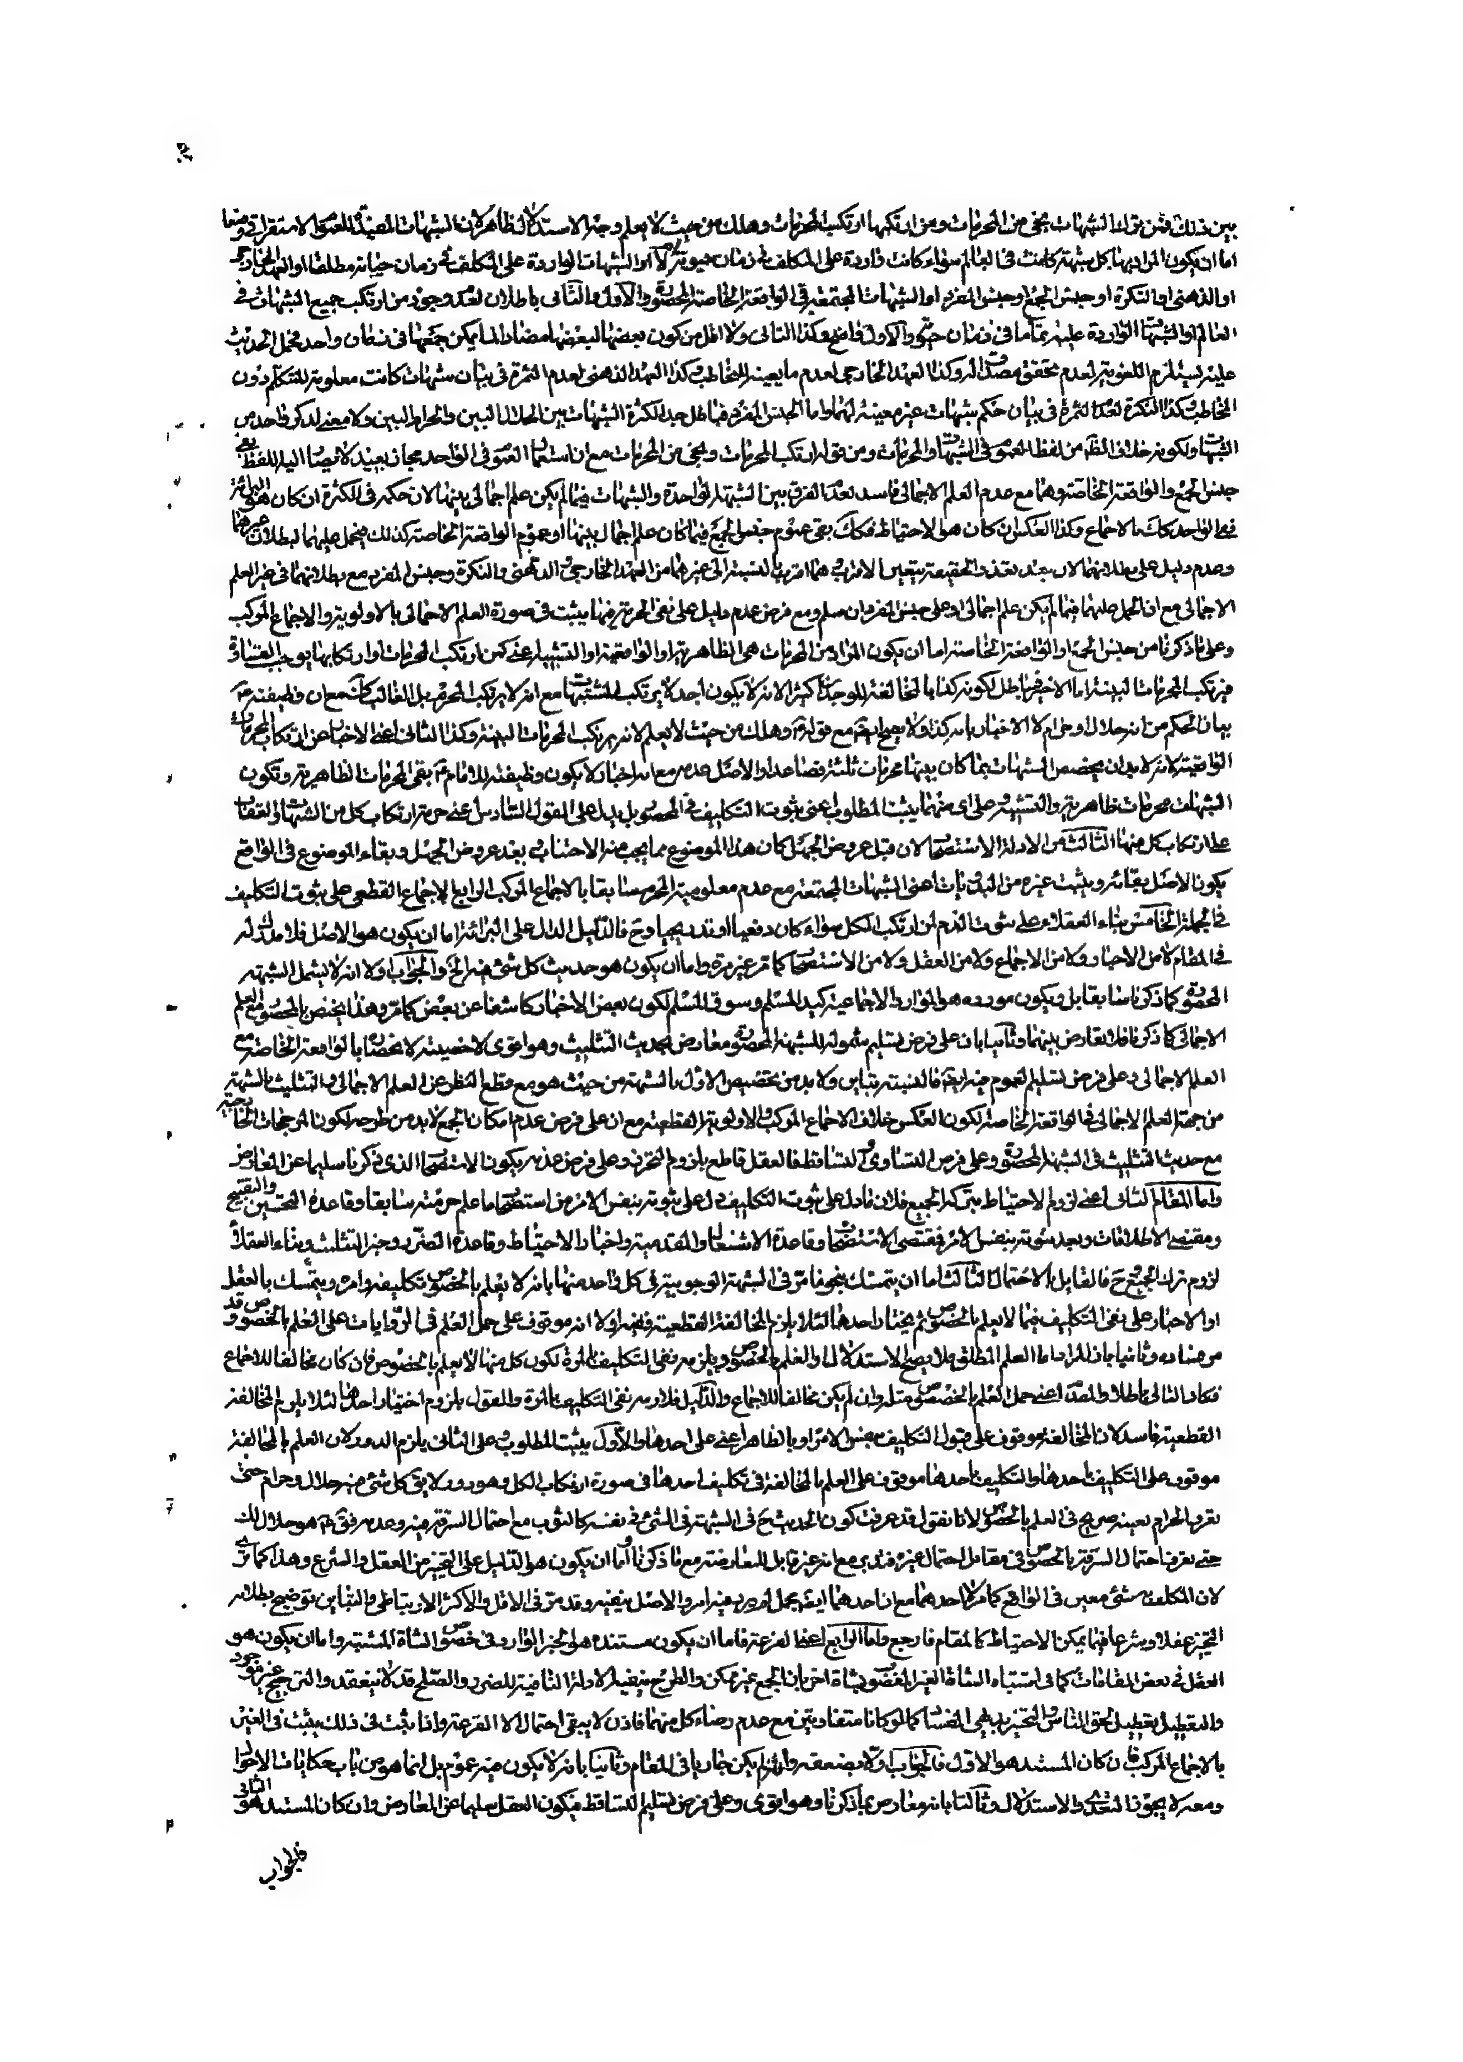 بين ذلك فمن ترك الشبهات نجى من المحرمات ومن ارتكبها ارتكب المحرمات وهلك من حيث لا يعلم وجه الاستدلال ظاهر لان الشبهات المفيدة للعموم الاستغراقى وضعا
اما ان يكون المراد بها كل شبهة كانت فى العالم سواء كانت واردة على المكلف فى زمان حيوته ام لا او الشبهات الواردة على المكلف فى زمان حياته مطلقا او العهد الخارجى
او الذهنى او النكرة او جنس الجمع او جنس المفرد او الشبهات المجتمعة فى الواقعة الخاصة المحصورة والاول والثانى باطلان لعدم وجود من ارتكب جميع الشبهات فى
العالم او الشبهات الواردة عليه تماما فى زمان حيوته والاول واضح وكذا الثانى ولا اقل من كون بعضها لبعضها مضادا لما يمكن جمعها فى زمان واحد فحمل الحديث
عليه يستلزم اللغوية لعدم تحقق مصداق له وكذا العهد الخارجى لعدم ما يعينه للمخاطب وكذا العهد الذهنى لعدم الثمرة فى بيان مشبهات كانت معلومة للمتكلم دون
المخاطب وكذا النكرة لعدم الثمرة فى بيان حكم شبهات غير معينة لهما واما الجنس المفرد فباطل جدا لكثرة الشبهات بين الحلال البين والحرام البين ولا معنى لذكر واحد من
الشبهات ولكونه خلاف الظاهر من لفظ العموم فى الشبهات والمحرمات ومن قوله ارتكب المحرمات ونجى من المحرمات مع ان استعمال العموم فى الواحد مجاز بعيد لا يصار اليه اللفظ بقى
جنس الجمع والواقعة الخاصة وهما مع عدم العلم الاجمالى فاسد لعدم الفرق بين الشبهة الواحدة والشبهات فيما لم يكن علم اجمالى بينها لان حكمه فى الكثرة ان كان هو البرائة
ففى الواحد كك بالاجماع وكذا العكس ان كان هو الاحتياط فكك بقى عموم جنس الجمع فيما كان علم اجمالى بينها او عموم الواقعة الخاصة كذلك فيحمل عليهما لبطلان غيرهما
وعدم دليل على بطلانهما لان بعد تعذر الحقيقة يتعين الاقرب وهما اقرب بالنسبة الى غيرهما من العهد الخارجى والذهنى والنكرة وجنس المفرد مع بطلانهما فى غير العلم
الاجمالى مع ان الحمل عليهما فيما لم يكن علم اجمالى او على جنس المفرد ان سلم ومع فرض عدم دليل على نفى الحرمة فيها يثبت فى صورة العلم الاجمالى بالاولوية والاجماع المركب
وعلى ما ذكرنا من جنس الجمع او الواقعة الخاصة اما ان يكون المراد من المحرمات هى الظاهرية او الواقعية او التشبيه اعنى كمن ارتكب المحرمات او ارتكابها يوجب القساوة
فيرتكب المحرمات البينة اما الاخير فباطل لكونه كذبا بالمخالفة للوجدان كثيرا لانه لا يكون احد لا يرتكب المشتبهات مع انه لا يرتكب المحرم بل الغالب كك مع ان وظيفته
بيان الحكم من انه حلال او حرام لا الاخبار بانه كذا ولا يصح ايضا مع قوله وهلك من حيث لا يعلم لانه يرتكب المحرمات البينة وكذا الثانى اعنى الاخبار عن ارتكاب المحرمات
الواقعية لانه لا بد ان يخصص الشبهات بما كان بينها محرمات ثلثة فصاعدا والاصل عدمه مع انه اخبار لا يكون وظيفة للامام بقى المحرمات الظاهرية وتكون
الشبهات محرمات ظاهرية والتشبيه وعلى اى منهما يثبت المطلوب اعنى ثبوت التكليف فى المحصور بل يدل على القول السادس اعنى حرمة ارتكاب كل من الشبهات والعقاب
على ارتكاب كل منها الثالث من الادلة الاستصحاب لان قبل عروض الجهل كان هذا الموضوع مما يجب منه الاجتناب وبعد عروض الجهل وبقاء الموضوع فى الواقع
يكون الاصل بقائه ويثبت غيره من البدويات اعنى الشبهات المجتمعة مع عدم معلومية المحرم سابقا بالاجماع المركب الرابع الاجماع القطعى على ثبوت التكليف
فى الجملة الخامس بناء العقلاء على ثبوت الذم لمن ارتكب الكل سواء كان دفعيا او تدريجيا وح فالدليل الدال على البرائة اما ان يكون هو الاصل فلا مدرك له
فى المقام لا من الاخبار ولا من الاجماع ولا من العقل ولا من الاستصحاب كما مر غير مرة واما ان يكون هو حديث كل شئ فيه الخ والجواب اولا انه لا يشمل الشبهة
المحصورة كما ذكرنا سابقا بل ويكون مورده هو الموارد الاجماعية كيد المسلم وسوق المسلم لكون بعض الاخبار كاشفا عن بعض كما مر وهذا يختص بالمحصور مع العلم
الاجمالى كما ذكرنا فلا تعارض بينهما وثانيا بان على فرض تسليم شموله للشبهة المحصورة معارض بحديث التثليث وهو اقوى لاخصيته لانحصاره بالواقعة الخاصة مع
العلم الاجمالى وعلى فرض تسليم العموم فيه ايضا فالنسبة تباين ولا بد من تخصيص الاول بالشبهة من حيث هو مع قطع النظر عن العلم الاجمالى والتثليث بالشبهة
من جهة العلم الاجمالى فى الواقعة الخاصة لكون العكس خلاف الاجماع المركب والاولوية القطعية مع ان على فرض عدم امكان الجمع لا بد من طرحه لكون المرجحات الخارجية
مع حديث التثليث فى الشبهة المحصورة وعلى فرض التساوى والتساقط فالعقل قاطع بلزوم التحرز وعلى فرض عدمه يكون الاستصحاب الذى ذكرنا سليما عن المعارض
واما المقام الثانى اعنى لزوم الاحتياط بترك الجميع فلان ما دل على ثبوت التكليف دل على ثبوته بنفس الامر من استصحاب ما علم حرمته سابقا وقاعدة التحسين والتقبيح
ومقتضى الاطلاقات وبعد ثبوته بنفس الامر فمقتضى الاستصحاب وقاعدة الاشتغال والمقدمية واخبار الاحتياط وقاعدة الضرر وخبر التثليث وبناء العقلاء
لزوم ترك الجميع ح فالقايل بالاحتمال الثالث اما ان يتمسك بنحو ما مر فى الشبهة الوجوبية فى كل واحد منها بانه لا يعلم بالخصوص تكليفه وامره ويتمسك بالعقل
او الاخبار على نفى التكليف فيما لا يعلم بالخصوص ثم يختار احدها لئلا يلزم المخالفة القطعية ففيه اولا انه موقوف على حمل العلم فى الروايات على العلم بالخصوص وقد
مر فساده وثانيا بان المراد اما العلم المطلق فلا يصح الاستدلال او العلم بالخصوص ويلزمه نفى التكليف بالمرة لكون كل منها لا يعلم بالخصوص فان كان مخالفا للاجماع
فكان التالى باطلا والمقدم اعنى حمل العلم بالخصوص مثله وان لم يكن مخالفا للاجماع والدليل فلازمه نفى التكليف بالمرة والقول بلزوم اختيار احدها لئلا يلزم المخالفة
القطعية فاسد لان المخالفة موقوف على ثبوت التكليف بنفس الامر او بالظاهر اعنى على احدها والاول يثبت المطلوب وعلى الثانى يلزم الدور لان العلم بالمخالفة
موقوف على التكليف باحدها والتكليف باحدها موقوف على العلم بالمخالفة فى تكليف احدها فى صورة ارتكاب الكل وهو دور ولا يقى كل شئ فيه حلال وحرام حتى
تعرف الحرام بعينه صريح فى العلم بالخصوص لانا نقول قد عرفت كون الحديث ح فى الشبهة فى الشئ فى نفسه كالثوب مع احتمال السرقة فيه وعدمه فهو حلال لك
حتى تعرف احتمال السرقة بالخصوص فى مقابل احتمال غيره فتدبر مع انه غير قابل للمعارضة مع ما ذكرنا واما ان يكون هو الدليل على التخيير من العقل والشرع وهذا كما ترى
لان المكلف به شئ معين فى الواقع كما مر لا احدهما مع ان احدهما ايضا مجمل لم يرد فيه امر والاصل ينفيه وقد مر فى الاقل والاكثر الارتباطى والتباين توضيح بطلان
التخيير عقلا وشرعا فيما يمكن الاحتياط كالمقام فارجع واما الرابع اعنى القرعة فاما ان يكون مستنده هو الخبر الوارد فى خصوص الشاة المشتبه واما ان يكون هو
العقل فى بعض المقامات كما فى اشتباه الشاة الغير المغصوب بشاة اخر بان الجمع غير ممكن والطرح ينفيه الادلة النافية للضرر والصلح قد لا ينعقد والترجيح غير موجود
والتعطيل تعطيل لحق الناس والتخيير بديهى الفساد كما لو كانا متفاوتين مع عدم رضاء كل منهما فاذن لا يبقى احتمال الا القرعة واذا ثبت فى ذلك يثبت فى الغير
بالاجماع المركب فان كان المستند هو الاول فالجواب اولا بضعفه وانه لم يكن جاريا فى المقام وثانيا بانه لا يكون فيه عموم بل انما هو من باب حكايات الاحوال
ومعه لا يجوز التعدى والاستدلال وثالثا بانه معارض بما ذكرنا وهو اقوى وعلى فرض تسليم التساقط فيكون العقل سليما عن المعارض وان كان المستند هو الثانى
فالجواب